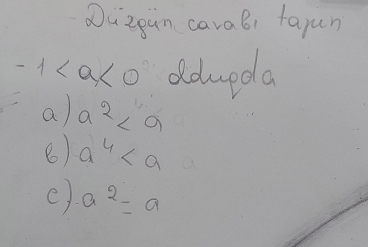 Düzgün cavabı tapın
-1 < a < 0 olduqda
a) a² < a
b) a⁴ < a
c) a² = a